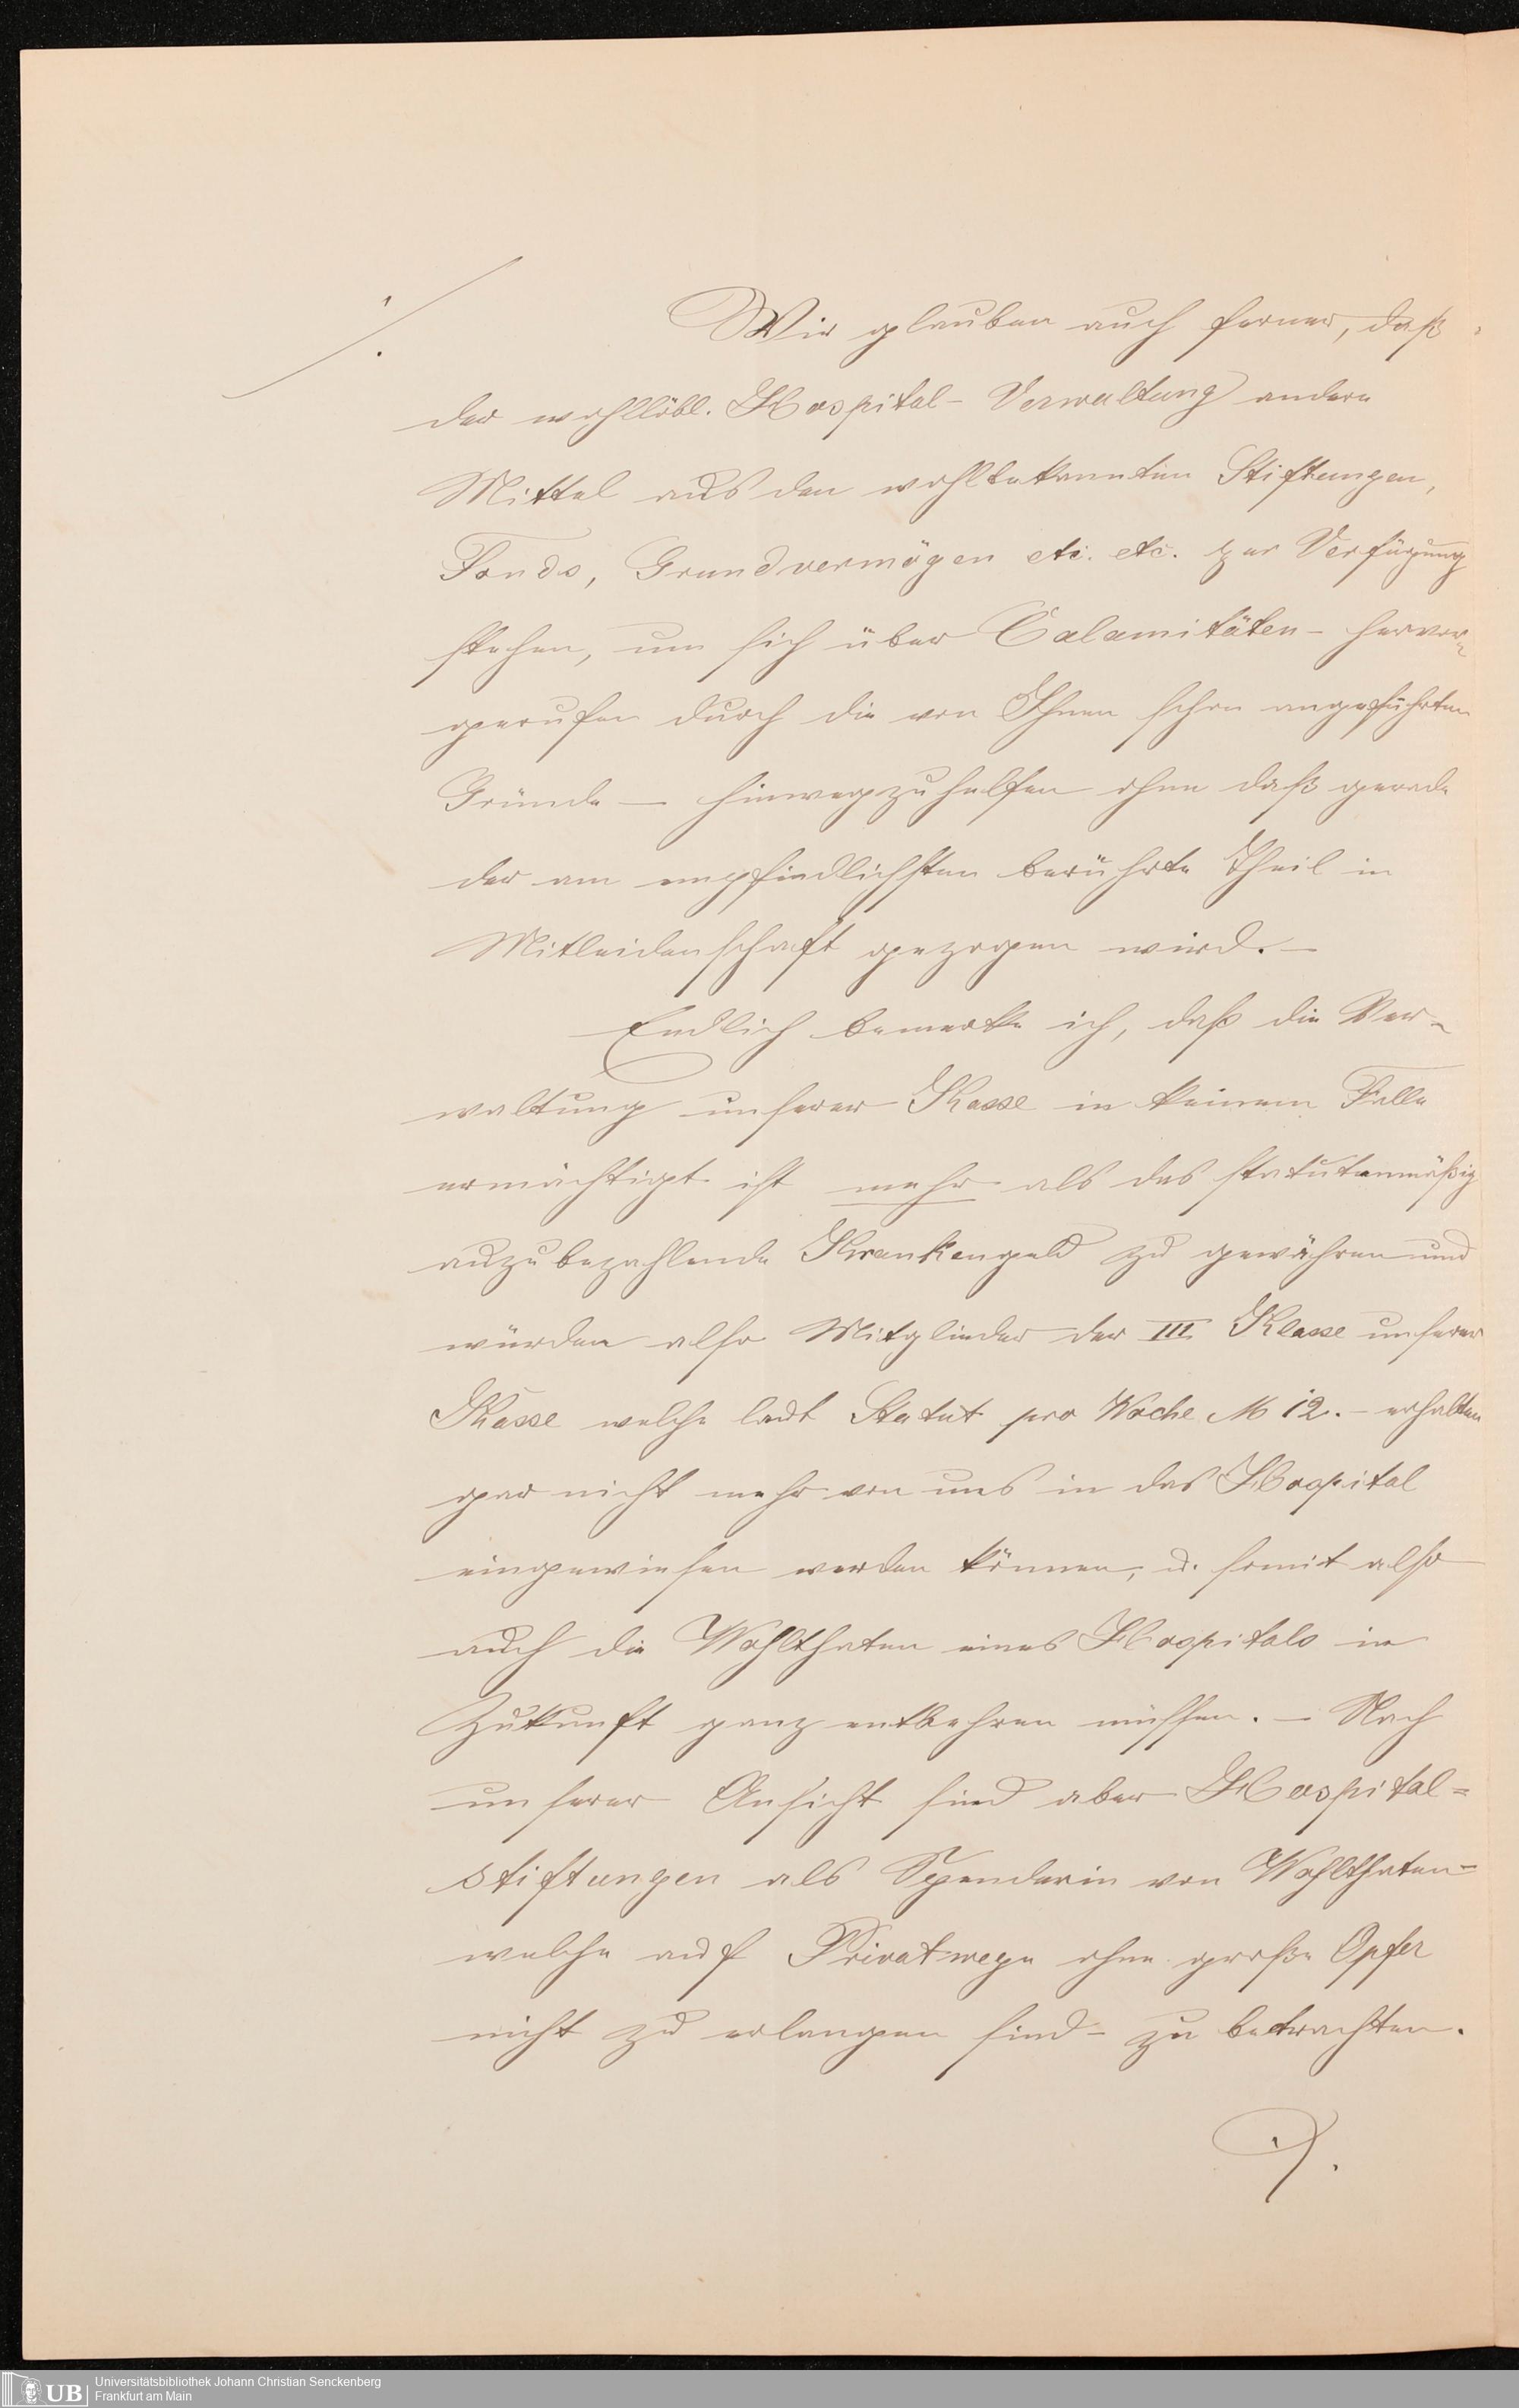 ./.
Wir glauben auch ferner, daß
der wohllöbl. Hospital-Verwaltung andere
Mittel aus den wohlbekannten Stiftungen,
Fonds, Grundvermögen etc. etc. zur Verfügung
stehen, um sich über Calamitäten - hervor-
gerufen durch die von Ihnen schon angeführten
Gründe - hinwegzuhelfen ohne daß gerade
der am empfindlichsten berührte Theil in
Mitleidenschaft gezogen wird. -
Endlich bemerke ich, daß die Ver-
waltung unserer Kasse in keinem Falle
ermächtigt ist mehr als das statutenmäßig
auszubezahlende Krankengeld zu gewähren und
würden also Mitglieder der III Klasse unserer
Kasse welche laut Statut pro Woche M 12.- erhalten
gar nicht mehr von uns in das Hospital
eingewiesen werden können, u. somit also
auch die Wohlthaten eines Hospitals in
Zukunft ganz entbehren müssen. - Nach
unserer Ansicht sind aber Hospital=
stiftungen als Spenderin von Wohlthaten -
welche auf Privatwege ohne große Opfer
nicht zu erlangen sind - zu betrachten.
Universitätsbibliothek Johann Christian Senckenberg
Frankfurt am Main
UB